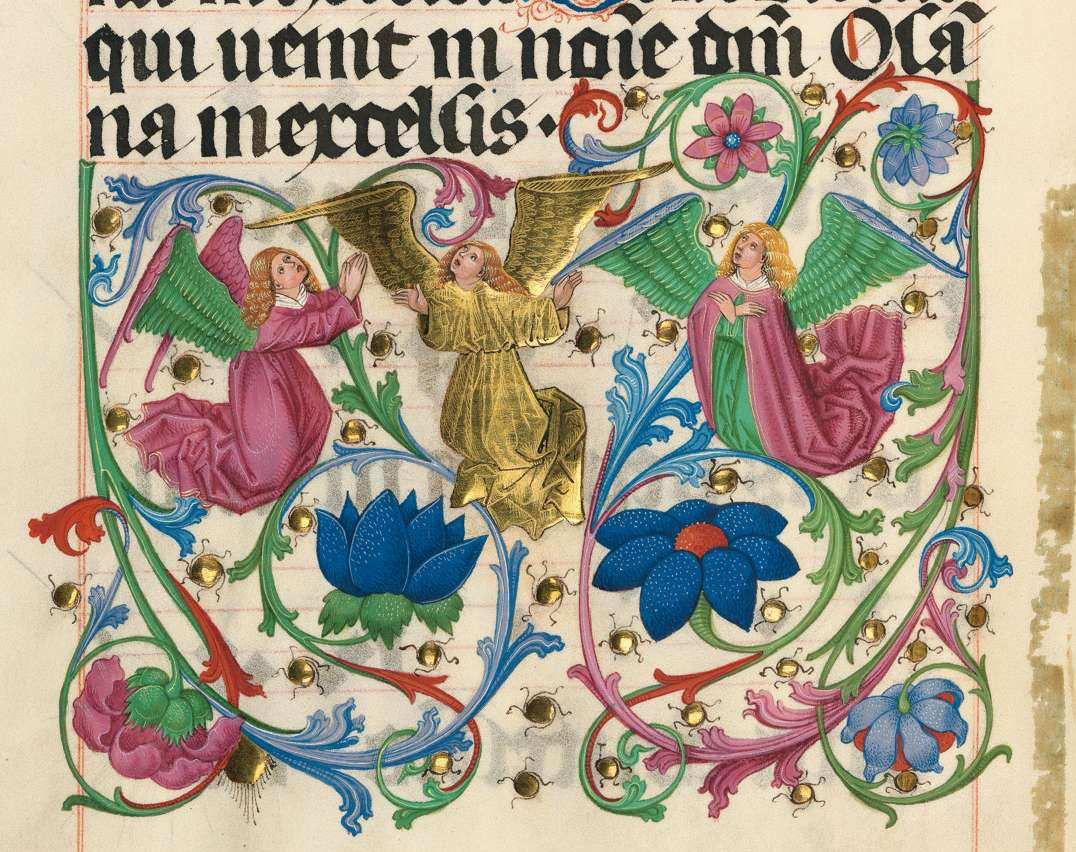 qui uenit in noīe dñi Osā
na in excelsis.